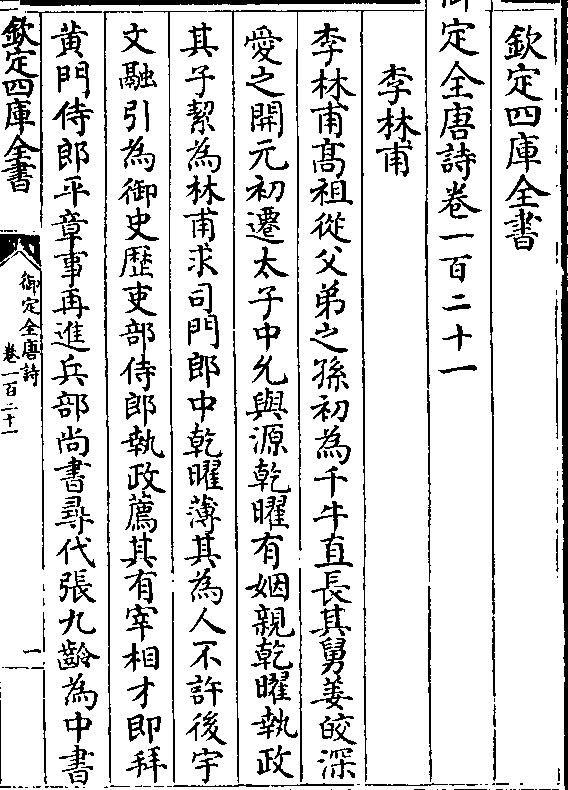 欽定四庫全書
御定全唐詩卷一百二十一
李林甫
李林甫髙祖從父弟之孫初為千牛直長其舅姜皎深
愛之開元初遷太子中允與源乾曜有姻親乾曜執政
其子絜為林甫求司門郎中乾曜薄其為人不許後宇
文融引為御史歴吏部侍郎執政薦其有宰相才即拜
黄門侍郎平章事再進兵部尚書尋代張九齡為中書
欽定四庫全書
御定全唐詩
卷一百二十一
一